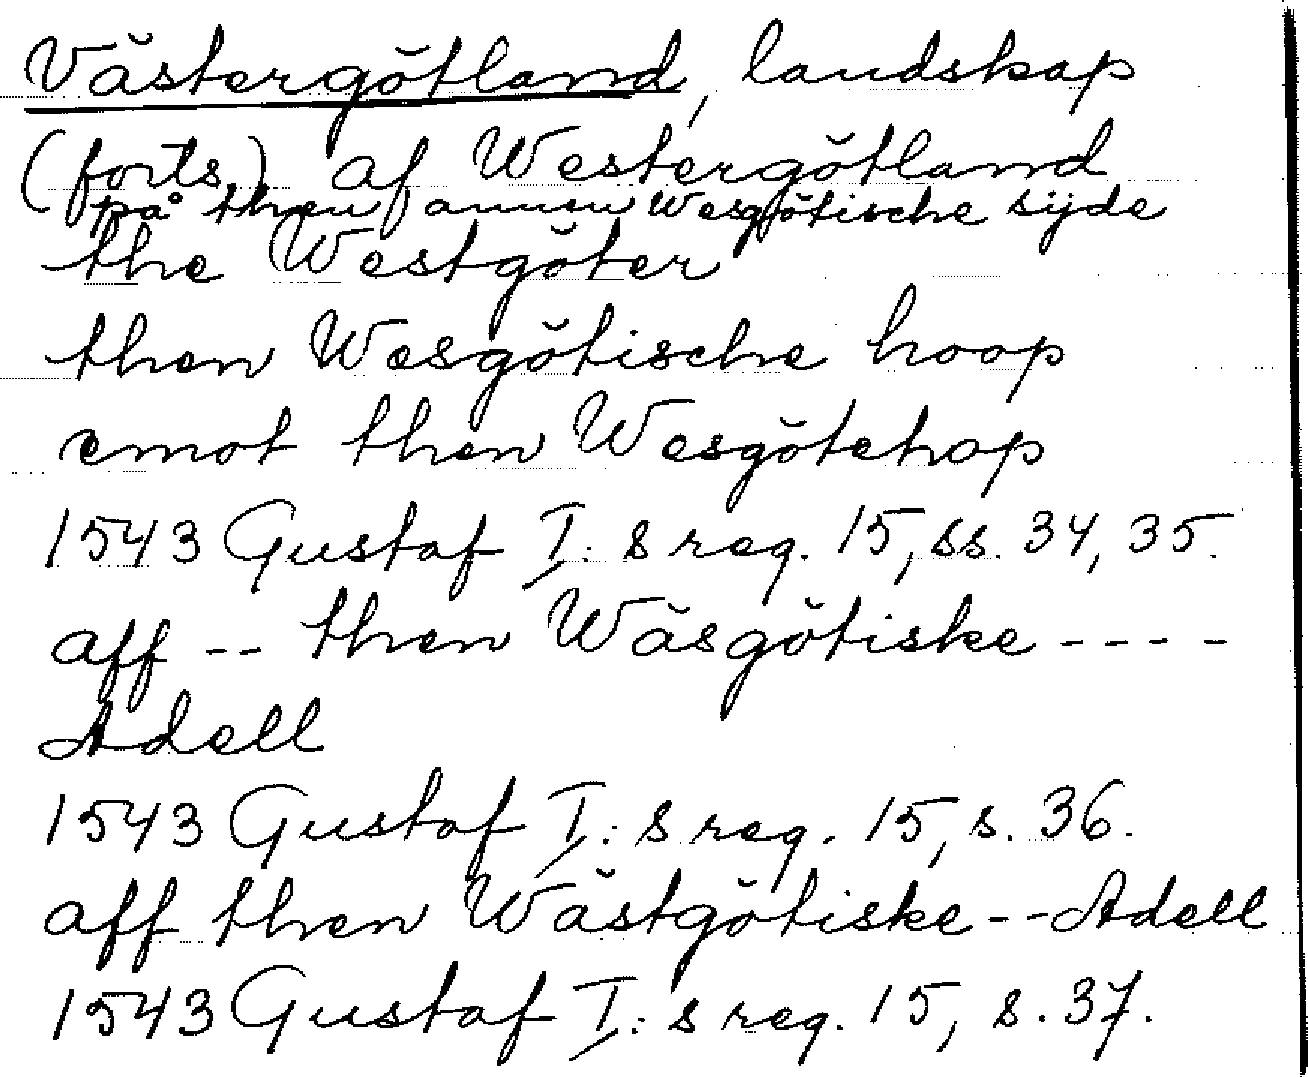 Västergötland, landskap
(forts.) af Westergötland
på then annen Wesgötische sijde
the Westgöter
then Wesgötische hoop
emot then Wesgötehop
1543 Gustaf I:s reg. 15, ss. 34, 35.
aff -- then Wäsgötiske ----
Adell
1543 Gustaf I:s reg. 15, s. 36.
aff then Wästgötiske -- Adell
1543 Gustaf I:s reg. 15, s. 37.